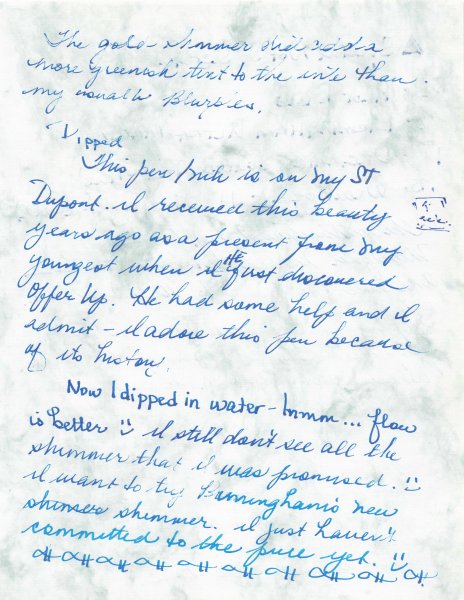 The gold-shimmer did add a
more greenish tint to the ink than
my usual Blurples.
Dipped
This pen/nib is on my ST
Dupont. I received this beauty
years ago as a present from my
youngest when HE just discovered
Offer Up. He had some help and I
admit - I adore this pen because
of its history.
Now I dipped in water - hmmm... flow
is better
I still don't see all the
shimmer that I was promised.
I want to try Birmingham's new
shimmer. I just haven't
committed to the price yet.